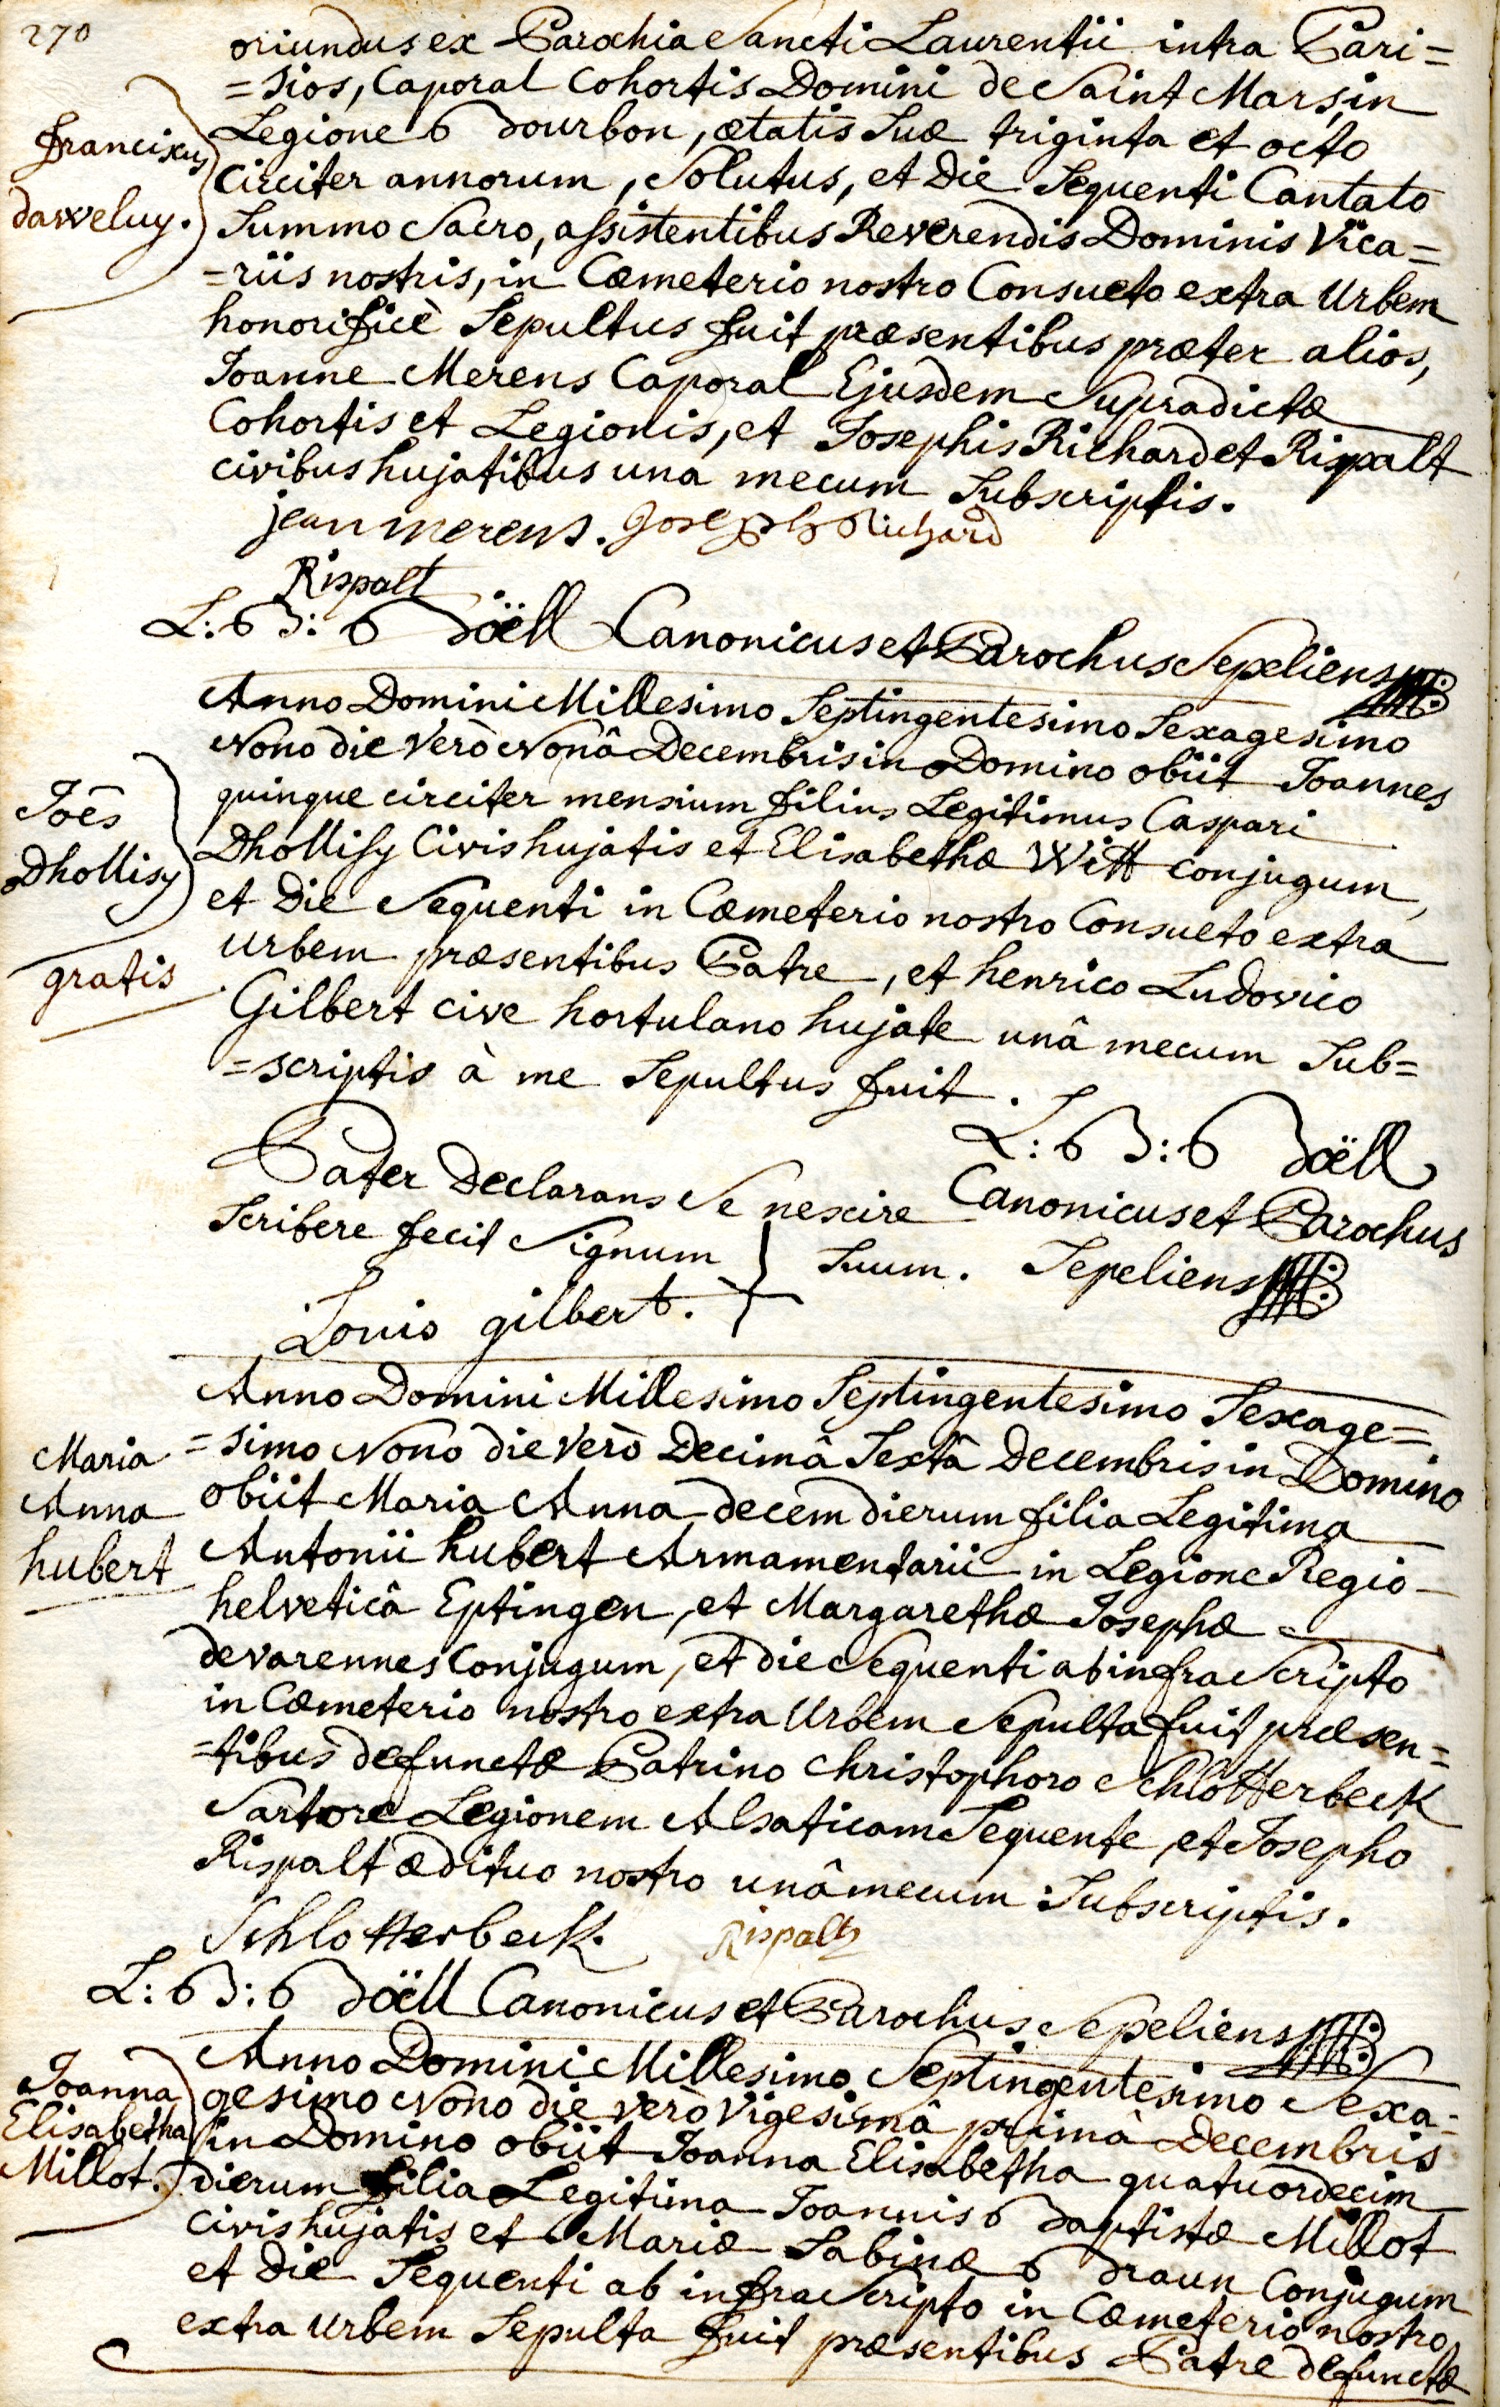 270
oriundus ex Parochia Sancti Laurentii intra Pari=
=sios, Caporal Cohortis Domini de Saint Mars, in
Legione Bourbon, ætatis suæ triginta et octo
circiter annorum, Solutus, et Die Sequenti Cantato
Summo Sacro, assistentibus Reverendis Dominis Vica=
=riis nostris, in Cœmeterio nostro Consueto extra Urbem
honorificè Sepultus fuit præsentibus præter alios,
Joanne Merens Caporal Ejusdem Supradictæ
Cohortis et Legionis, et Josephis Richard et Rispalt
civibus hujatibus una mecum Subscriptis.
franciscus
darveluy.
jean merens. Joseph Richard
Rispalt
L: B: Boëll Canonicus et Parochus Sepeliens
Anno Domini Millesimo Septingentesimo Sexagesimo
Nono die Verò Nonâ Decembris in Domino obiit Joannes
quinque circiter mensium filius Legitimus Caspari
Dhollisy Civis hujatis et Elisabethæ Witt conjugum,
et Die Sequenti in Cœmeterio nostro Consueto extra
Urbem præsentibus Patre, et henrico Ludovico
Gilbert cive hortulano hujate unâ mecum Sub=
=scriptis à me Sepultus fuit.
Joês
Dhollisy
gratis
L: B: Boëll
Canonicus et Parochus
Sepeliens
Pater Declarans Se nescire
Scribere fecit Signum + Suum.
Louis gilbert.
Anno Domini Millesimo Septingentesimo Sexage=
=simo Nono die Verò Decimâ Sextâ Decembris in Domino
obiit Maria Anna decem dierum filia Legitima
Antonii hubert Armamentarii in Legione Regio
helveticâ Eptingen, et Margarethæ Josephæ
devarennes Conjugum, et die Sequenti ab infra Scripto
in Cœmeterio nostro extra Urbem Sepulta fuit præsen=
=tibus defunctæ Patrino Christophoro Schlotterbeck
Sartore Legionem Alsaticam Sequente, et Josepho
Rispalt ædituo nostro unâ mecum Subscriptis.
Maria
Anna
hubert
Schlotterbeck. Rispalt
L: B: Boëll Canonicus et Parochus Sepeliens
Anno Domini Millesimo Septingentesimo Sexa-
gesimo Nono die Verò Vigesimâ primâ Decembris
in Domino obiit Joanna Elisabetha quatuordecim
dierum filia Legitima Joannis Baptistæ Millot
civis hujatis et Mariæ Sabinæ Braun Conjugum
et Die Sequenti ab infra Scripto in Cœmeterio nostro
extra Urbem Sepulta fuit præsentibus Patre defunctæ
Joanna
Elisabetha
Millot.